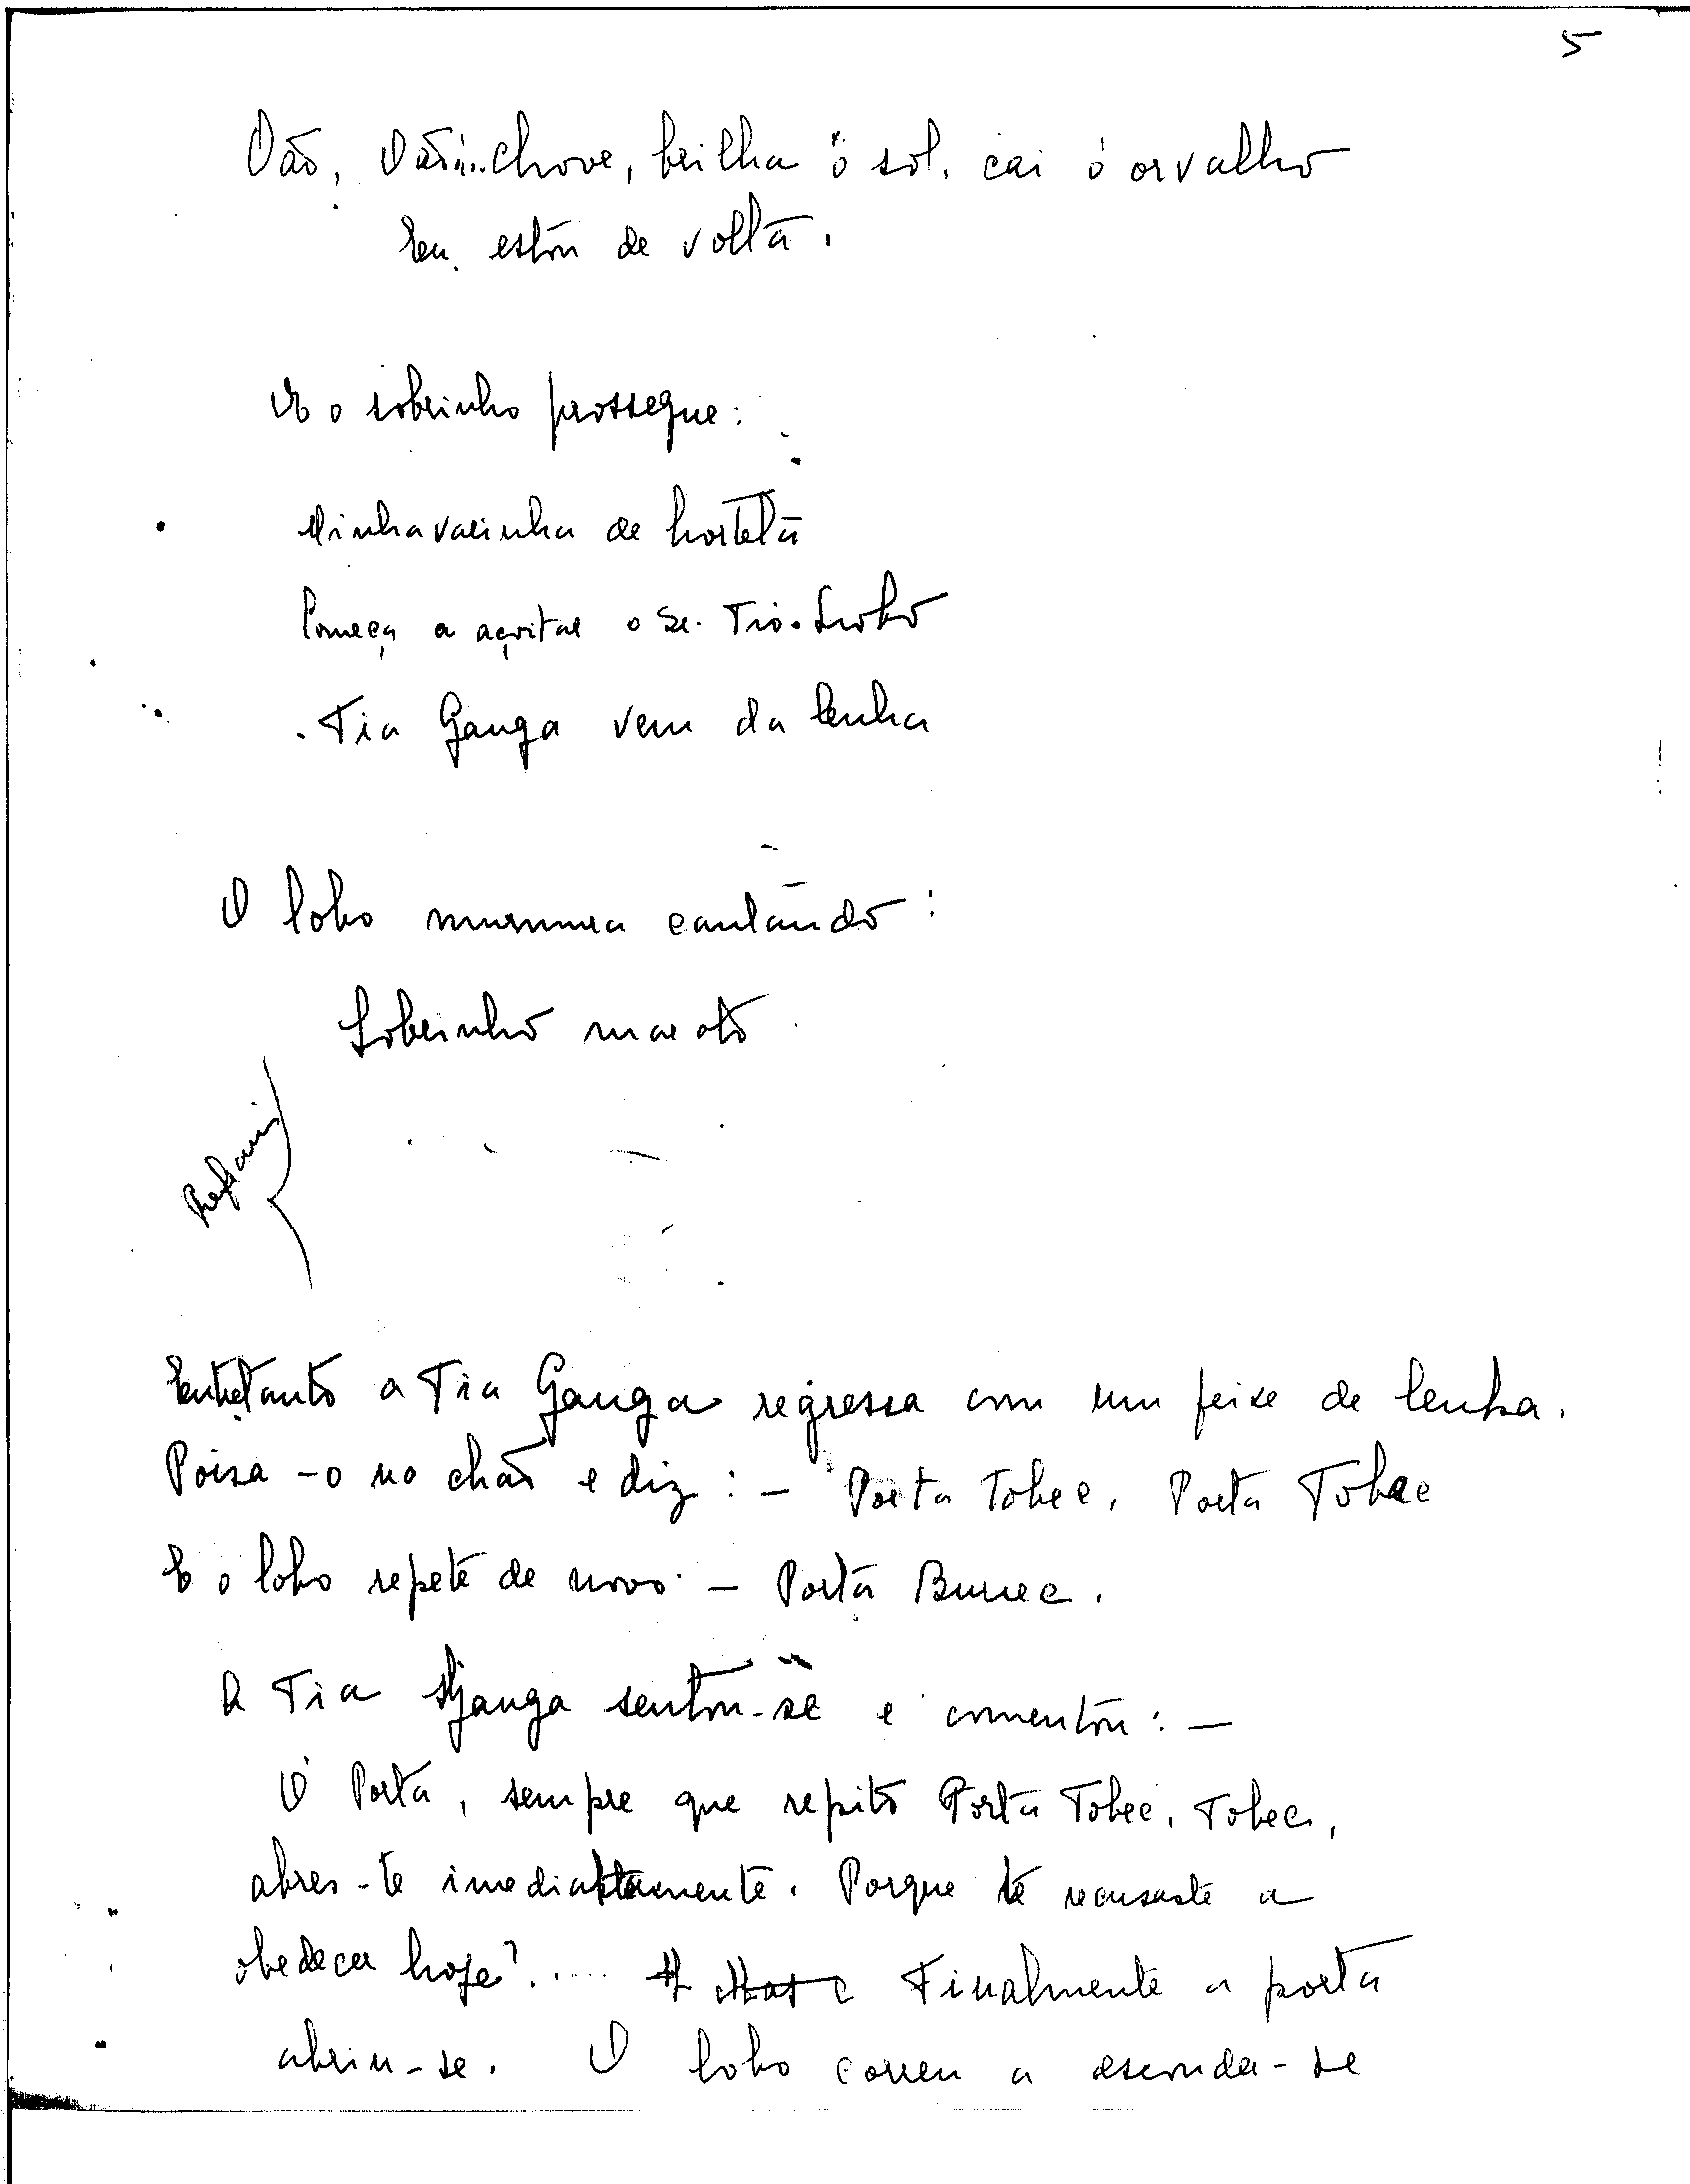 5
Vão, Vão... chove, brilha o sol, cai o orvalho
Eu estou de volta.
E o sobrinho prossegue:
Minha varinha de hortelã
Começa a açoitar o Sr. Tio-Lobo
Tia Ganga vem da lenha
O lobo murmura cantando:
Sobrinho maroto
Refrain
Entretanto a Tia Ganga regressa com um feixe de lenha.
Poisa-o no chão e diz: - Porta Tobec, Porta Tobec
E o lobo repete de novo - Porta Burrec.
A Tia Ganga sentou-se e comentou: -
Ó Porta, sempre que repito Porta Tobec, Tobec,
abres-te imediatamente. Porque te recusaste a
obedecer hoje?.... Finalmente a porta
abriu-se. O lobo correu a esconder-se